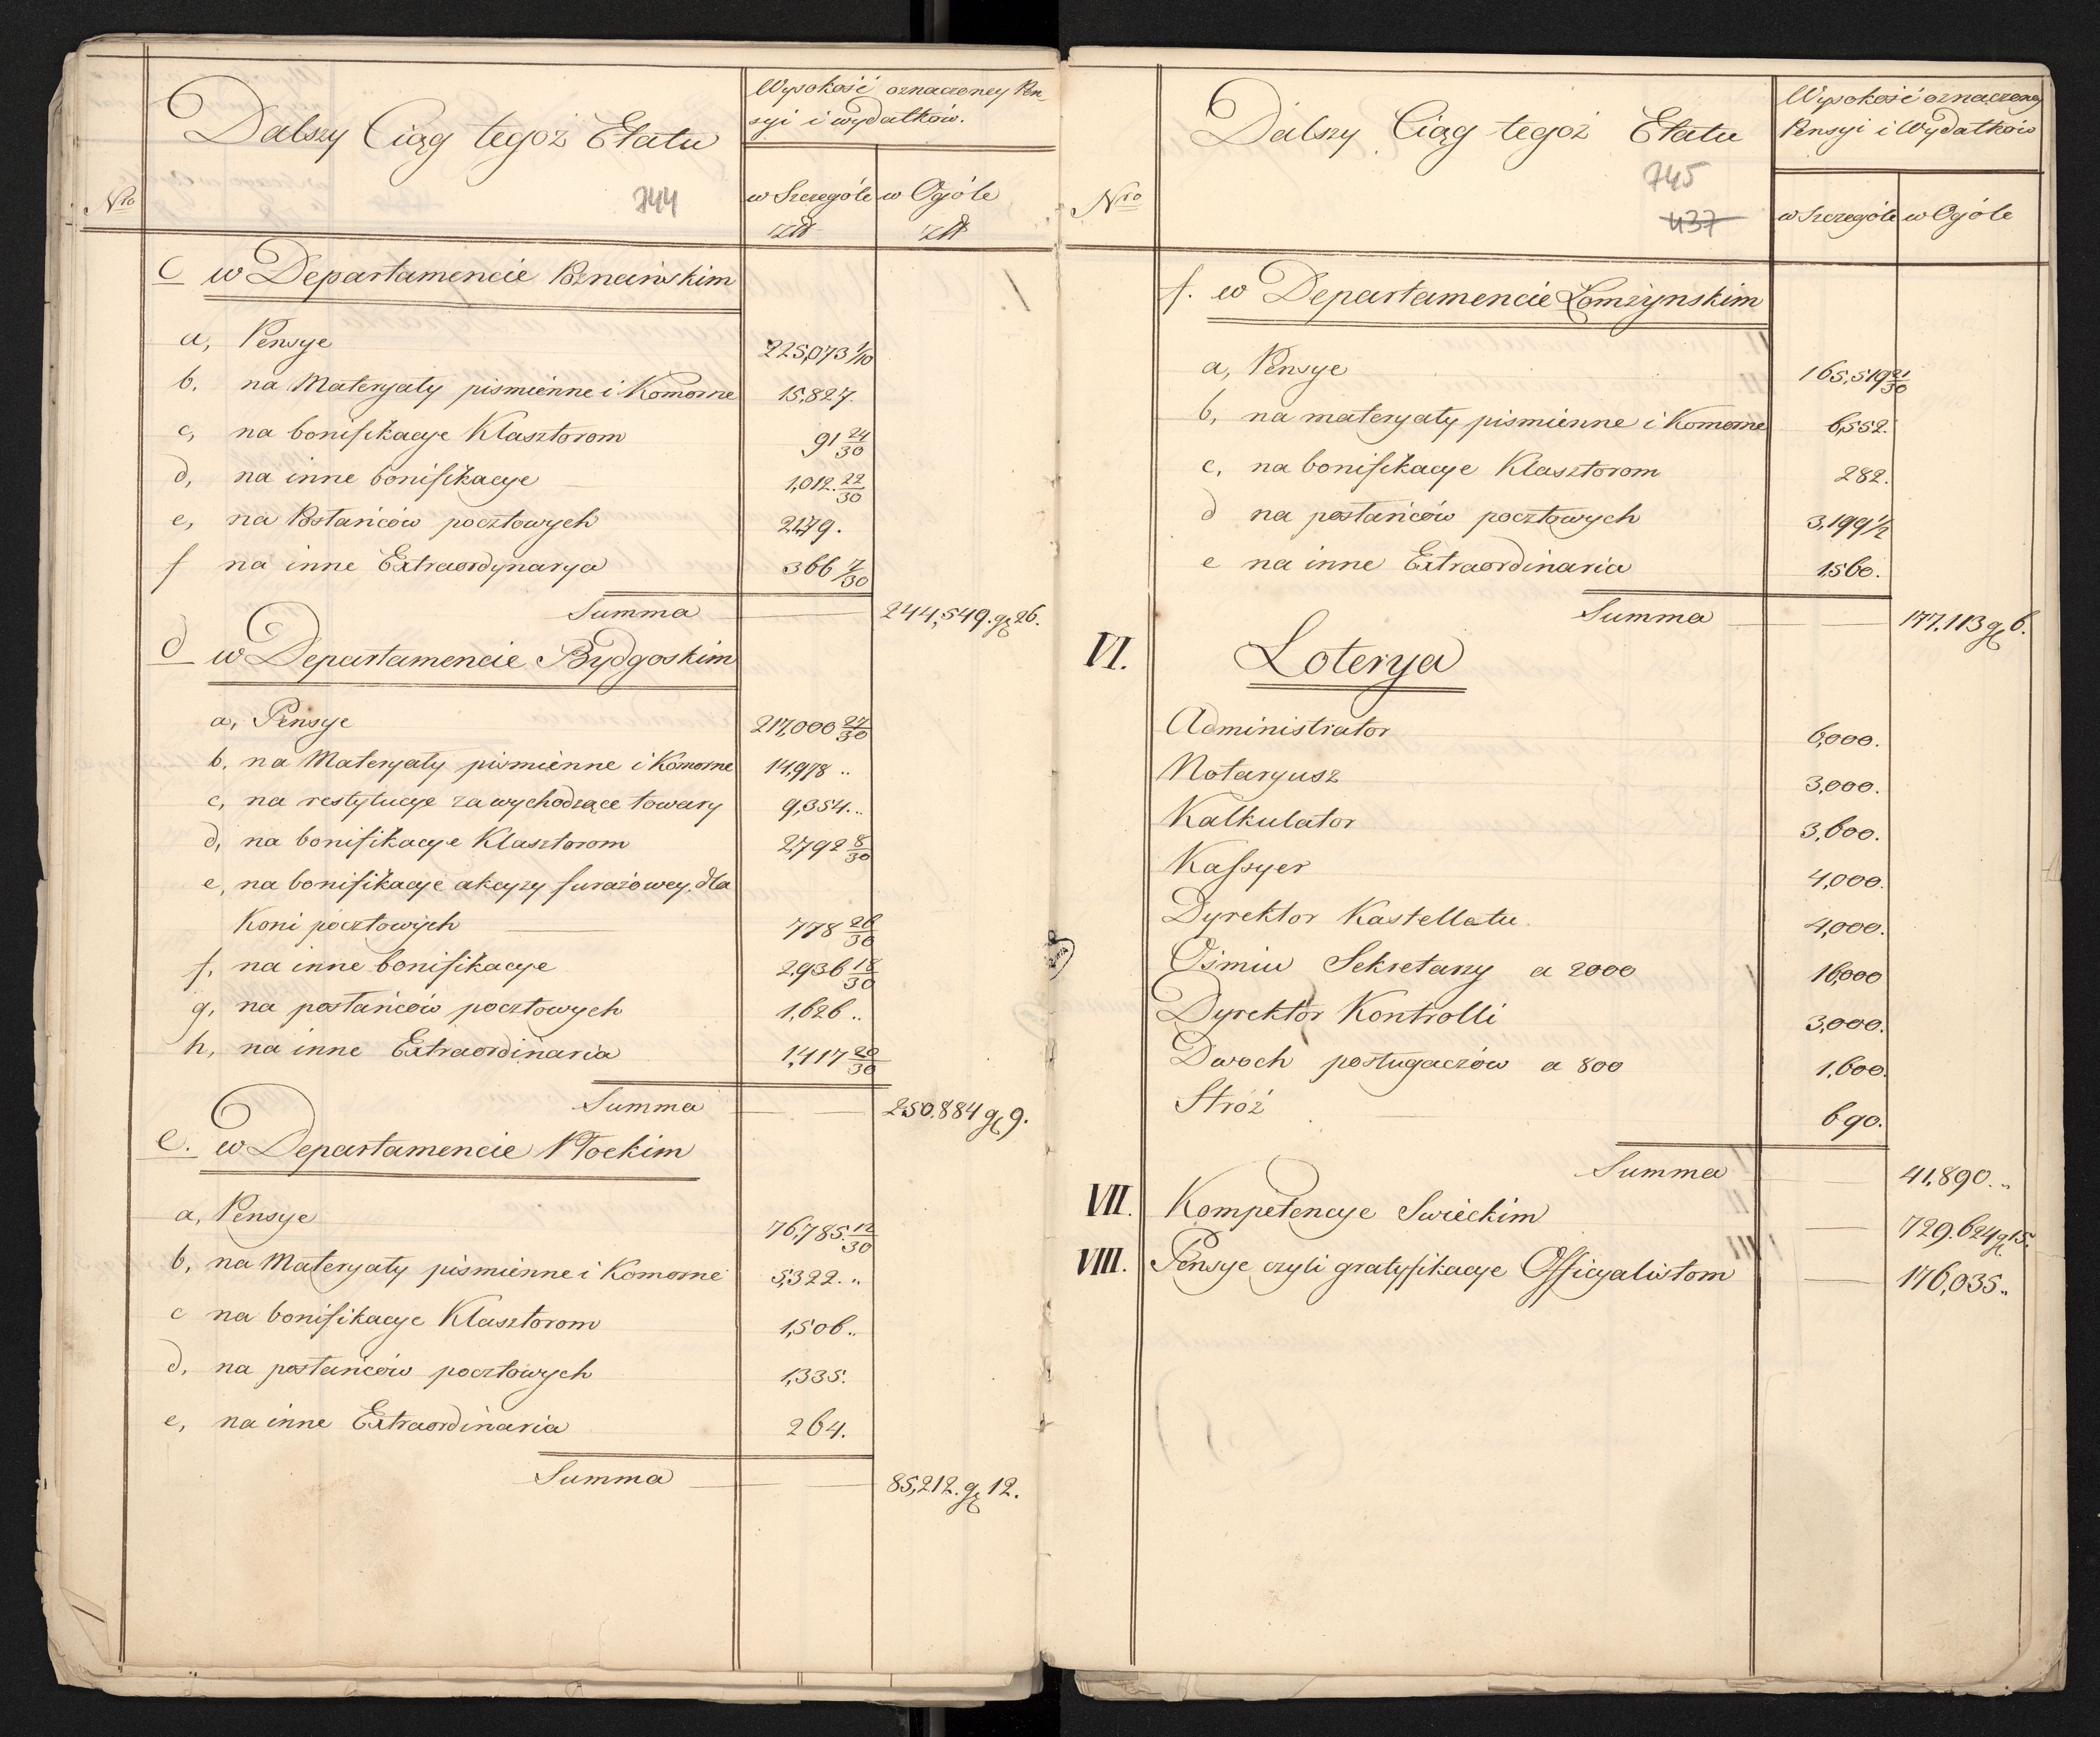 Dalszy Ciąg tegoż Etatu
744
Nro
Wysokość oznaczoney Pen-
syi i wydatków.
w Szczególe w Ogóle
złł złł
c w Departamencie Poznańskim
a, Pensye 225,073 1/10
b. na Materyały pismienne i Komorne 15,827.
c, na bonifikacye Klasztorom 91 24/30
d, na inne bonifikacye 1,012. 22/30
e, na Posłańców pocztowych 2179.
f na inne Extraordynarya 366 7/30
Summa 244,549. gr 26.
d w Departamencie Bydgoskim
a, Pensye 217,000 27/30
b. na Materyały pismienne i Komorne 14,978 ..
c, na restytucye za wychodzące towary 9,354...
d, na bonifikacye Klasztorom 2,792 8/30
e, na bonifikacye akcyzy furażowey dla
Koni pocztowych 778 26/30
f, na inne bonifikacye 2,936 18/30
g, na posłańców pocztowych 1,626 ..
h, na inne Extraordinaria 1,417 20/30
Summa 250.884 gr 9.
e. w Departamencie Płockim
a, Pensye 76,785. 12/30
b, na Materyały pismienne i Komorne 5,322. ..
c na bonifikacye Klasztorom 1,506..
d, na posłańców pocztowych 1,335.
e, na inne Extraordinaria 264.
Summa 85,212. gr 12.
Dalszy Ciąg tegoż Etatu
745
437
Nro
Wysokość oznaczoney
Pensyi i Wydatków
w Szczególe w Ogóle
f. w Departamencie Łomżynskim
a, Pensye 165,519 21/30
b, na materyały pismienne i Komorne 6,552.
c, na bonifikacye Klasztorom 282.
d na posłańców pocztowych 3,199 1/2
e na inne Extraordinaria 1,560.
Summa 177.113 gr 6.
VI. Loterya
Administrator 6,000.
Notaryusz 3,000.
Kalkulator 3,600.
Kassyer 4,000.
Dyrektor Kastellatu 4,000.
Ośmiu Sekretarzy a 2000 16,000
Dyrektor Kontrolli 3,000.
Dwoch posługaczów a 800 1,600.
Stróż 690.
Summa 41,890. ..
VII. Kompetencye Swieckim 729.624 gr 15.
VIII. Pensye czyli gratyfikacye Officyalistom 176,035..